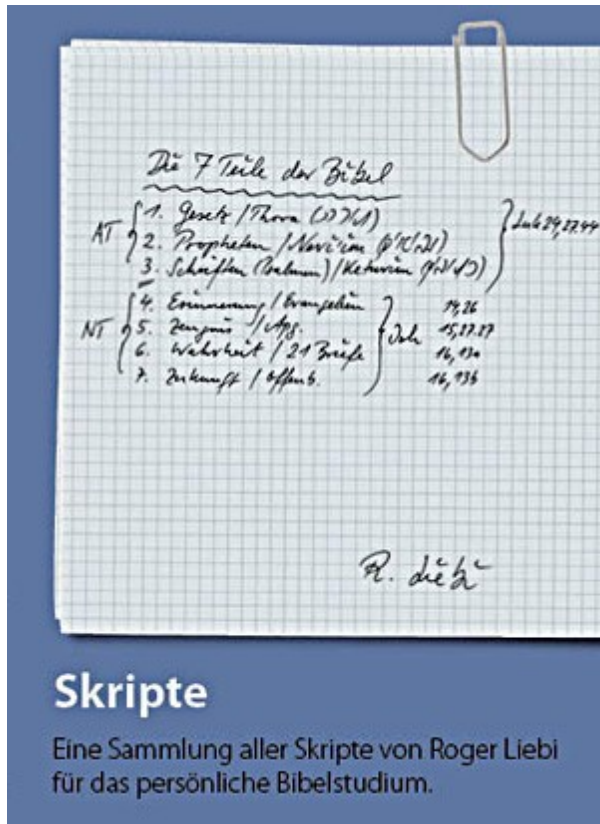 Die 7 Teile der Bibel
AT
1. Gesetz / Thora
2. Propheten / Nevi'im
3. Schriften (Psalmen) / Ketuvim
Luk 24,27.44
NT
4. Erinnerung / Evangelien 14,26
5. Zeugnis / Apg. Joh 15,27.27
6. Wahrheit / 21 Briefe 16,13a
7. Zukunft / Offenb. 16,13b
R. Liebi
Skripte
Eine Sammlung aller Skripte von Roger Liebi
für das persönliche Bibelstudium.